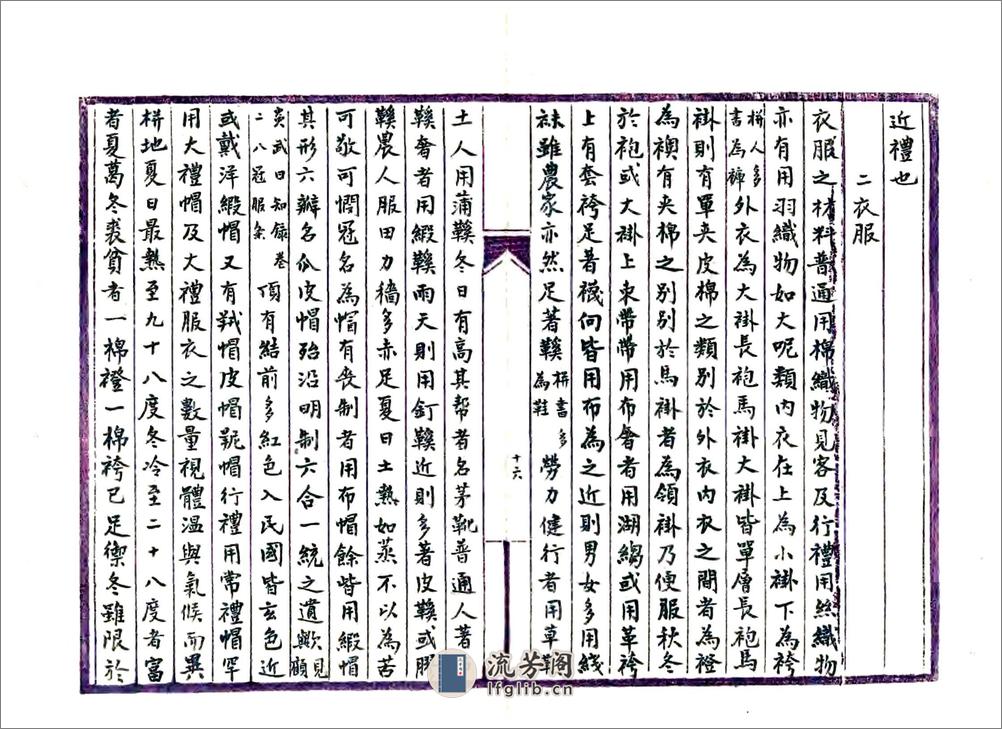 近禮也
二衣服
衣服之材料普通用棉織物見客及行禮用絲織物
亦有用羽織物如大呢類內衣在上為小褂下為袴
栟人多書為褲外衣為大褂長袍馬褂大褂皆單層長袍馬
褂則有單夾皮棉之類別於外衣內衣之間者為襖
為襖有夾棉之別別於馬褂者為領褂乃便服秋冬
於袍或大褂上束帶帶用布奢者用湖縐或用革袴
上有套袴足著襪向皆用布為之近則男女多用綫
襪雖農家亦然足著鞵栟書多為鞋勞力健行者用草鞵
十六
土人用蒲鞵冬日有高其幫者名茅靴普通人著布
鞵奢者用緞鞵雨天則用釘鞵近則多著皮鞵或膠
鞵農人服田力穡多赤足夏日土熱如蒸不以為苦
可敬可憫冠名為帽有喪制者用布帽餘皆用緞帽
其形六瓣名瓜皮帽殆沿明制六合一統之遺歟見顧
炎武日知錄卷二八冠服条頂有結前多紅色入民國皆玄色近
或戴洋緞帽又有羢帽皮帽氈帽行禮用常禮帽罕
用大禮帽及大禮服衣之數量視體溫與氣候而異
栟地夏日最熱至九十八度冬冷至二十八度者富
者夏葛冬裘貧者一棉襖一棉袴已足禦冬雖限於
流芳阁
lfglib.cn